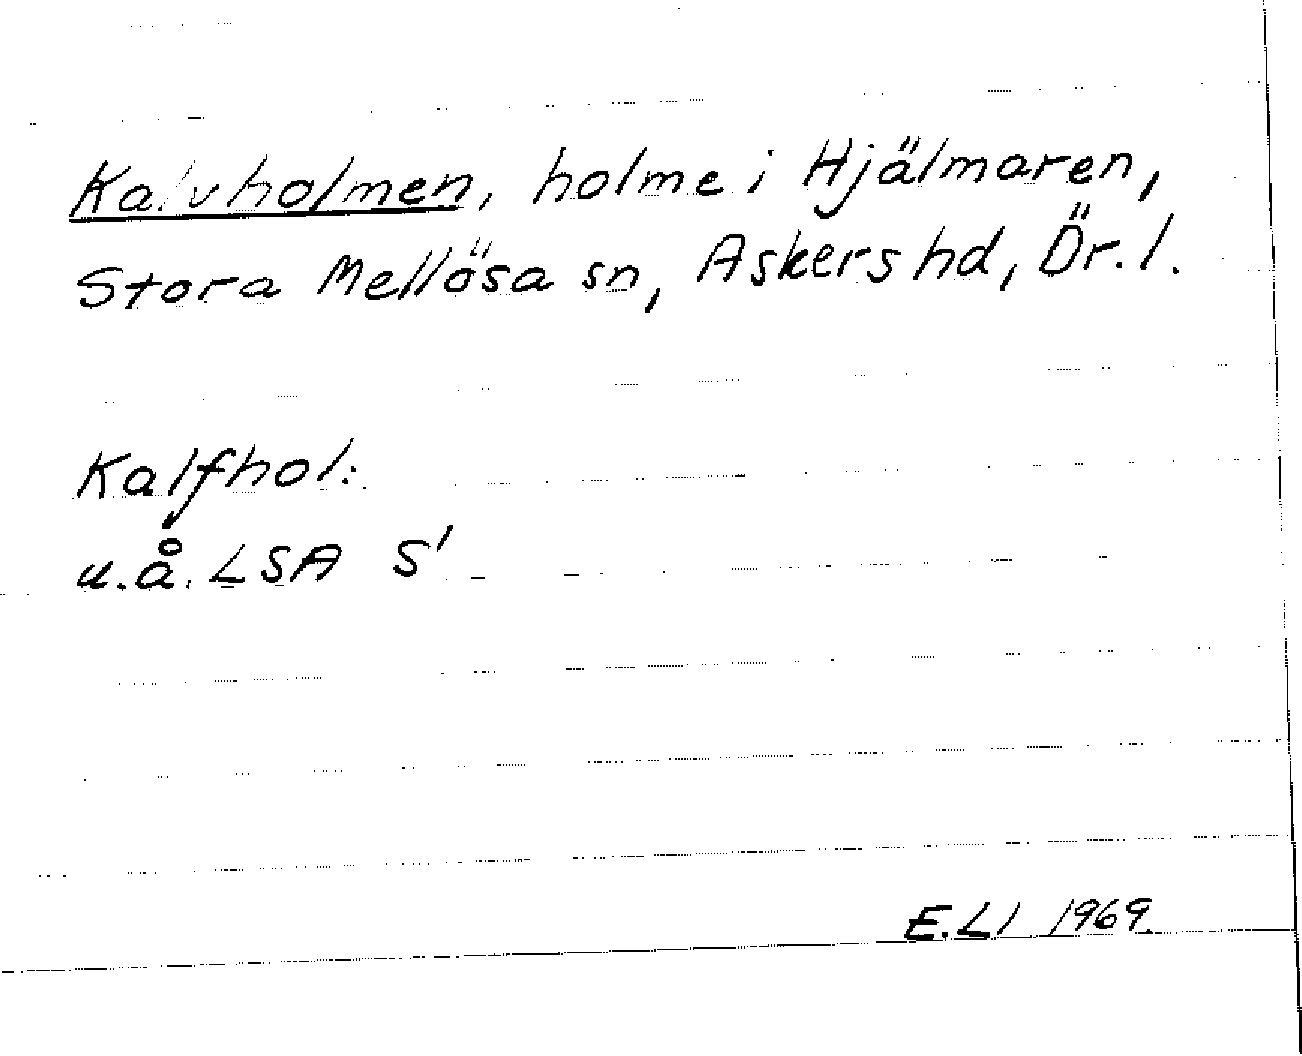 Kalvholmen, holme i Hjälmaren,
Stora Mellösa sn, Askers hd, Ör. l.
Kalfhol:
u.å. LSA S'
E.Ll 1969.